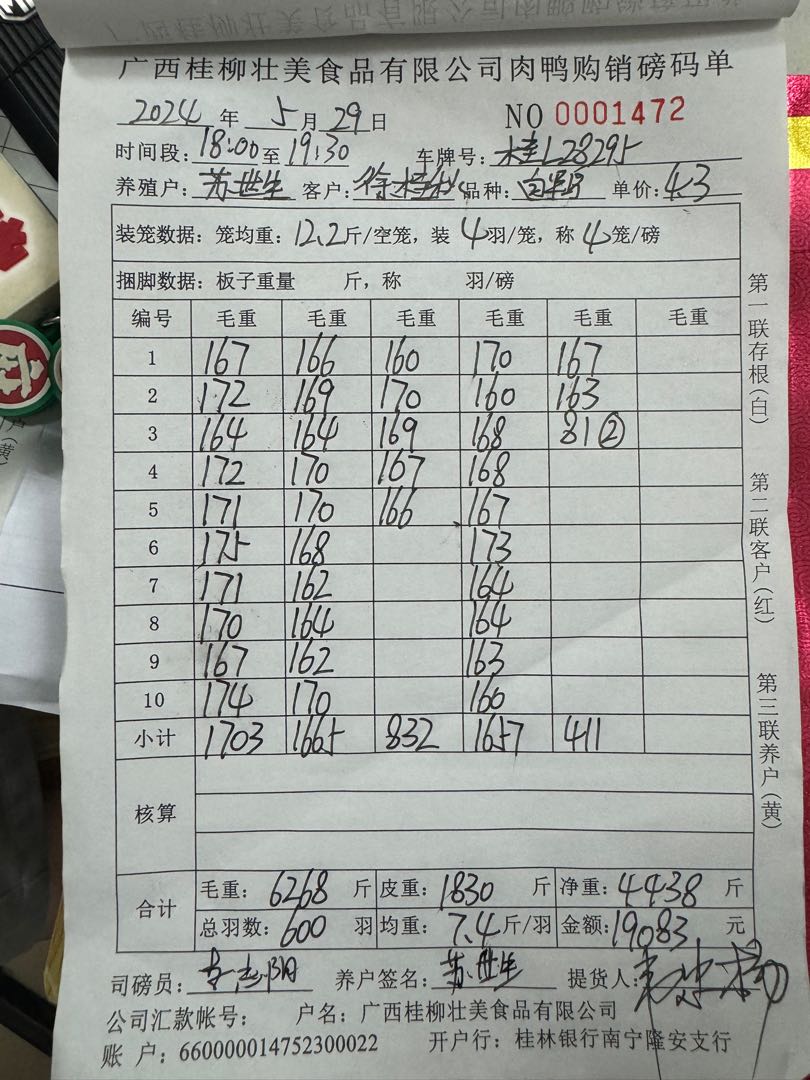 广西桂柳壮美食品有限公司肉鸭购销磅码单
2024 年 5 月 29 日 NO 0001472
时间段: 18:00 至 19:30 车牌号: 桂L28295
养殖户: 苏世生 客户: 徐桂秋 品种: 单价: 4.3
装笼数据: 笼均重: 12.2 斤/空笼, 装 4 羽/笼, 称 4 笼/磅
捆脚数据: 板子重量 斤, 称 羽/磅
编号 毛重 毛重 毛重 毛重 毛重 毛重
1 167 166 160 170 167
2 172 169 170 160 163
3 164 164 169 168 81②
4 172 170 167 168
5 171 170 166 167
6 175 168 173
7 171 162 164
8 170 164 164
9 167 162 163
10 174 170 160
小计 1703 1665 832 1657 411
核算
合计 毛重: 6268 斤 皮重: 1830 斤 净重: 4438 斤
总羽数: 600 羽 均重: 7.4 斤/羽 金额: 19083 元
司磅员: 养户签名: 苏世生 提货人:
公司汇款帐号: 户名: 广西桂柳壮美食品有限公司
账 户: 660000014752300022 开户行: 桂林银行南宁隆安支行
第一联存根(白)
第二联客户(红)
第三联养户(黄)